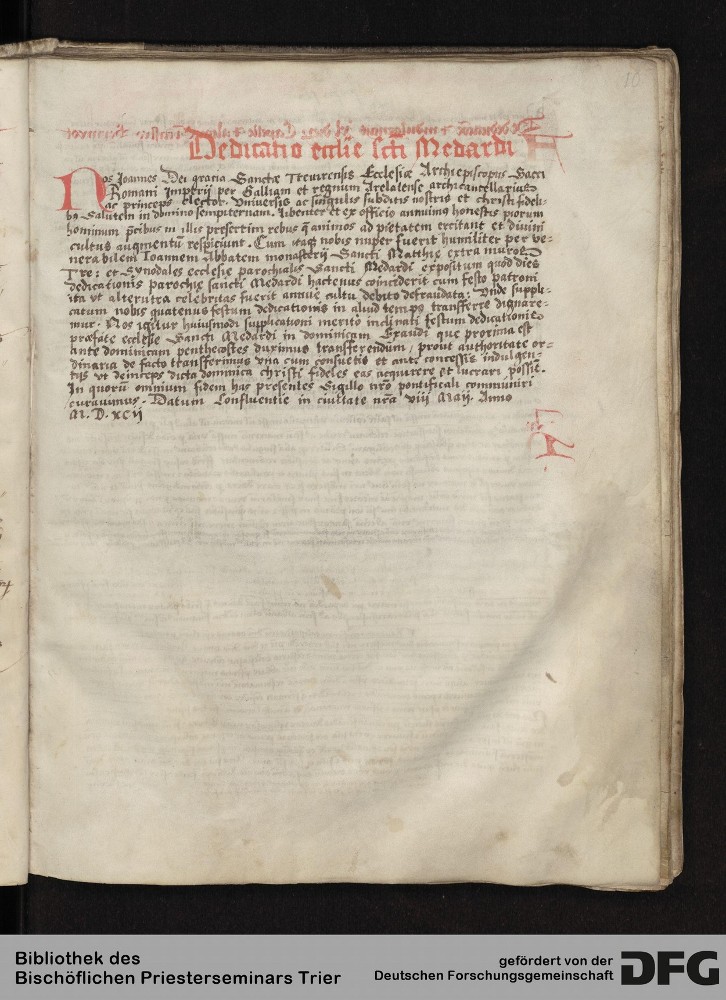 10
Dedicatio ecclīe scti Medardi
Nos Joannes Dei gracia Sanctæ Treuirensis Ecclesiæ Archiepiscopus Sacri
Romani Imperij per Galliam et regnum Arelatense archicancellarius
ac princeps elector. Vniuersis ac singulis subditis nostris et christi fideli-
bꝯ Salutem in domino sempiternam. Libenter et ex officio annuimꝯ honestis piorum
hominum p̄cibus in illis presertim rebus q̄ animos ad pietatem excitant et diuini
cultus augmentū respiciunt. Cum itaqꝫ nobis nuper fuerit humiliter per ve-
nerabilem Joannem Abbatem monasterij Sancti Matthię extra muros
Tre: et Synodales ecclesię parochialis Sancti Medardi expositum quod dies
dedicationis parochię sancti Medardi hactenus coinciderit cum festo patroni
ita vt alterutra celebritas fuerit annue cultu debito defraudata: Vnde suppli-
catum nobis quatenus festum dedicationis in aliud tempꝯ transferre dignare-
mur. Nos igitur huiusmodi supplicationi merito inclinati festum dedicationis
præfatę ecclesię Sancti Medardi in dominicam Exaudi que proxima est
ante dominicam penthecostes duximus transferendum, prout authoritate or-
dinaria de facto transferimus vna cum consuetis et ante concessis indulgen-
tijs vt deinceps dicta dominica christi fideles eas acquirere et lucrari possīt.
In quorū omnium fidem has presentes Sigillo nr̄o pontificali communiri
curauimus. Datum Confluentie in ciuitate nr̄a viij Maij. Anno
M. D. xcij
Bibliothek des
Bischöflichen Priesterseminars Trier
gefördert von der
Deutschen Forschungsgemeinschaft
DFG